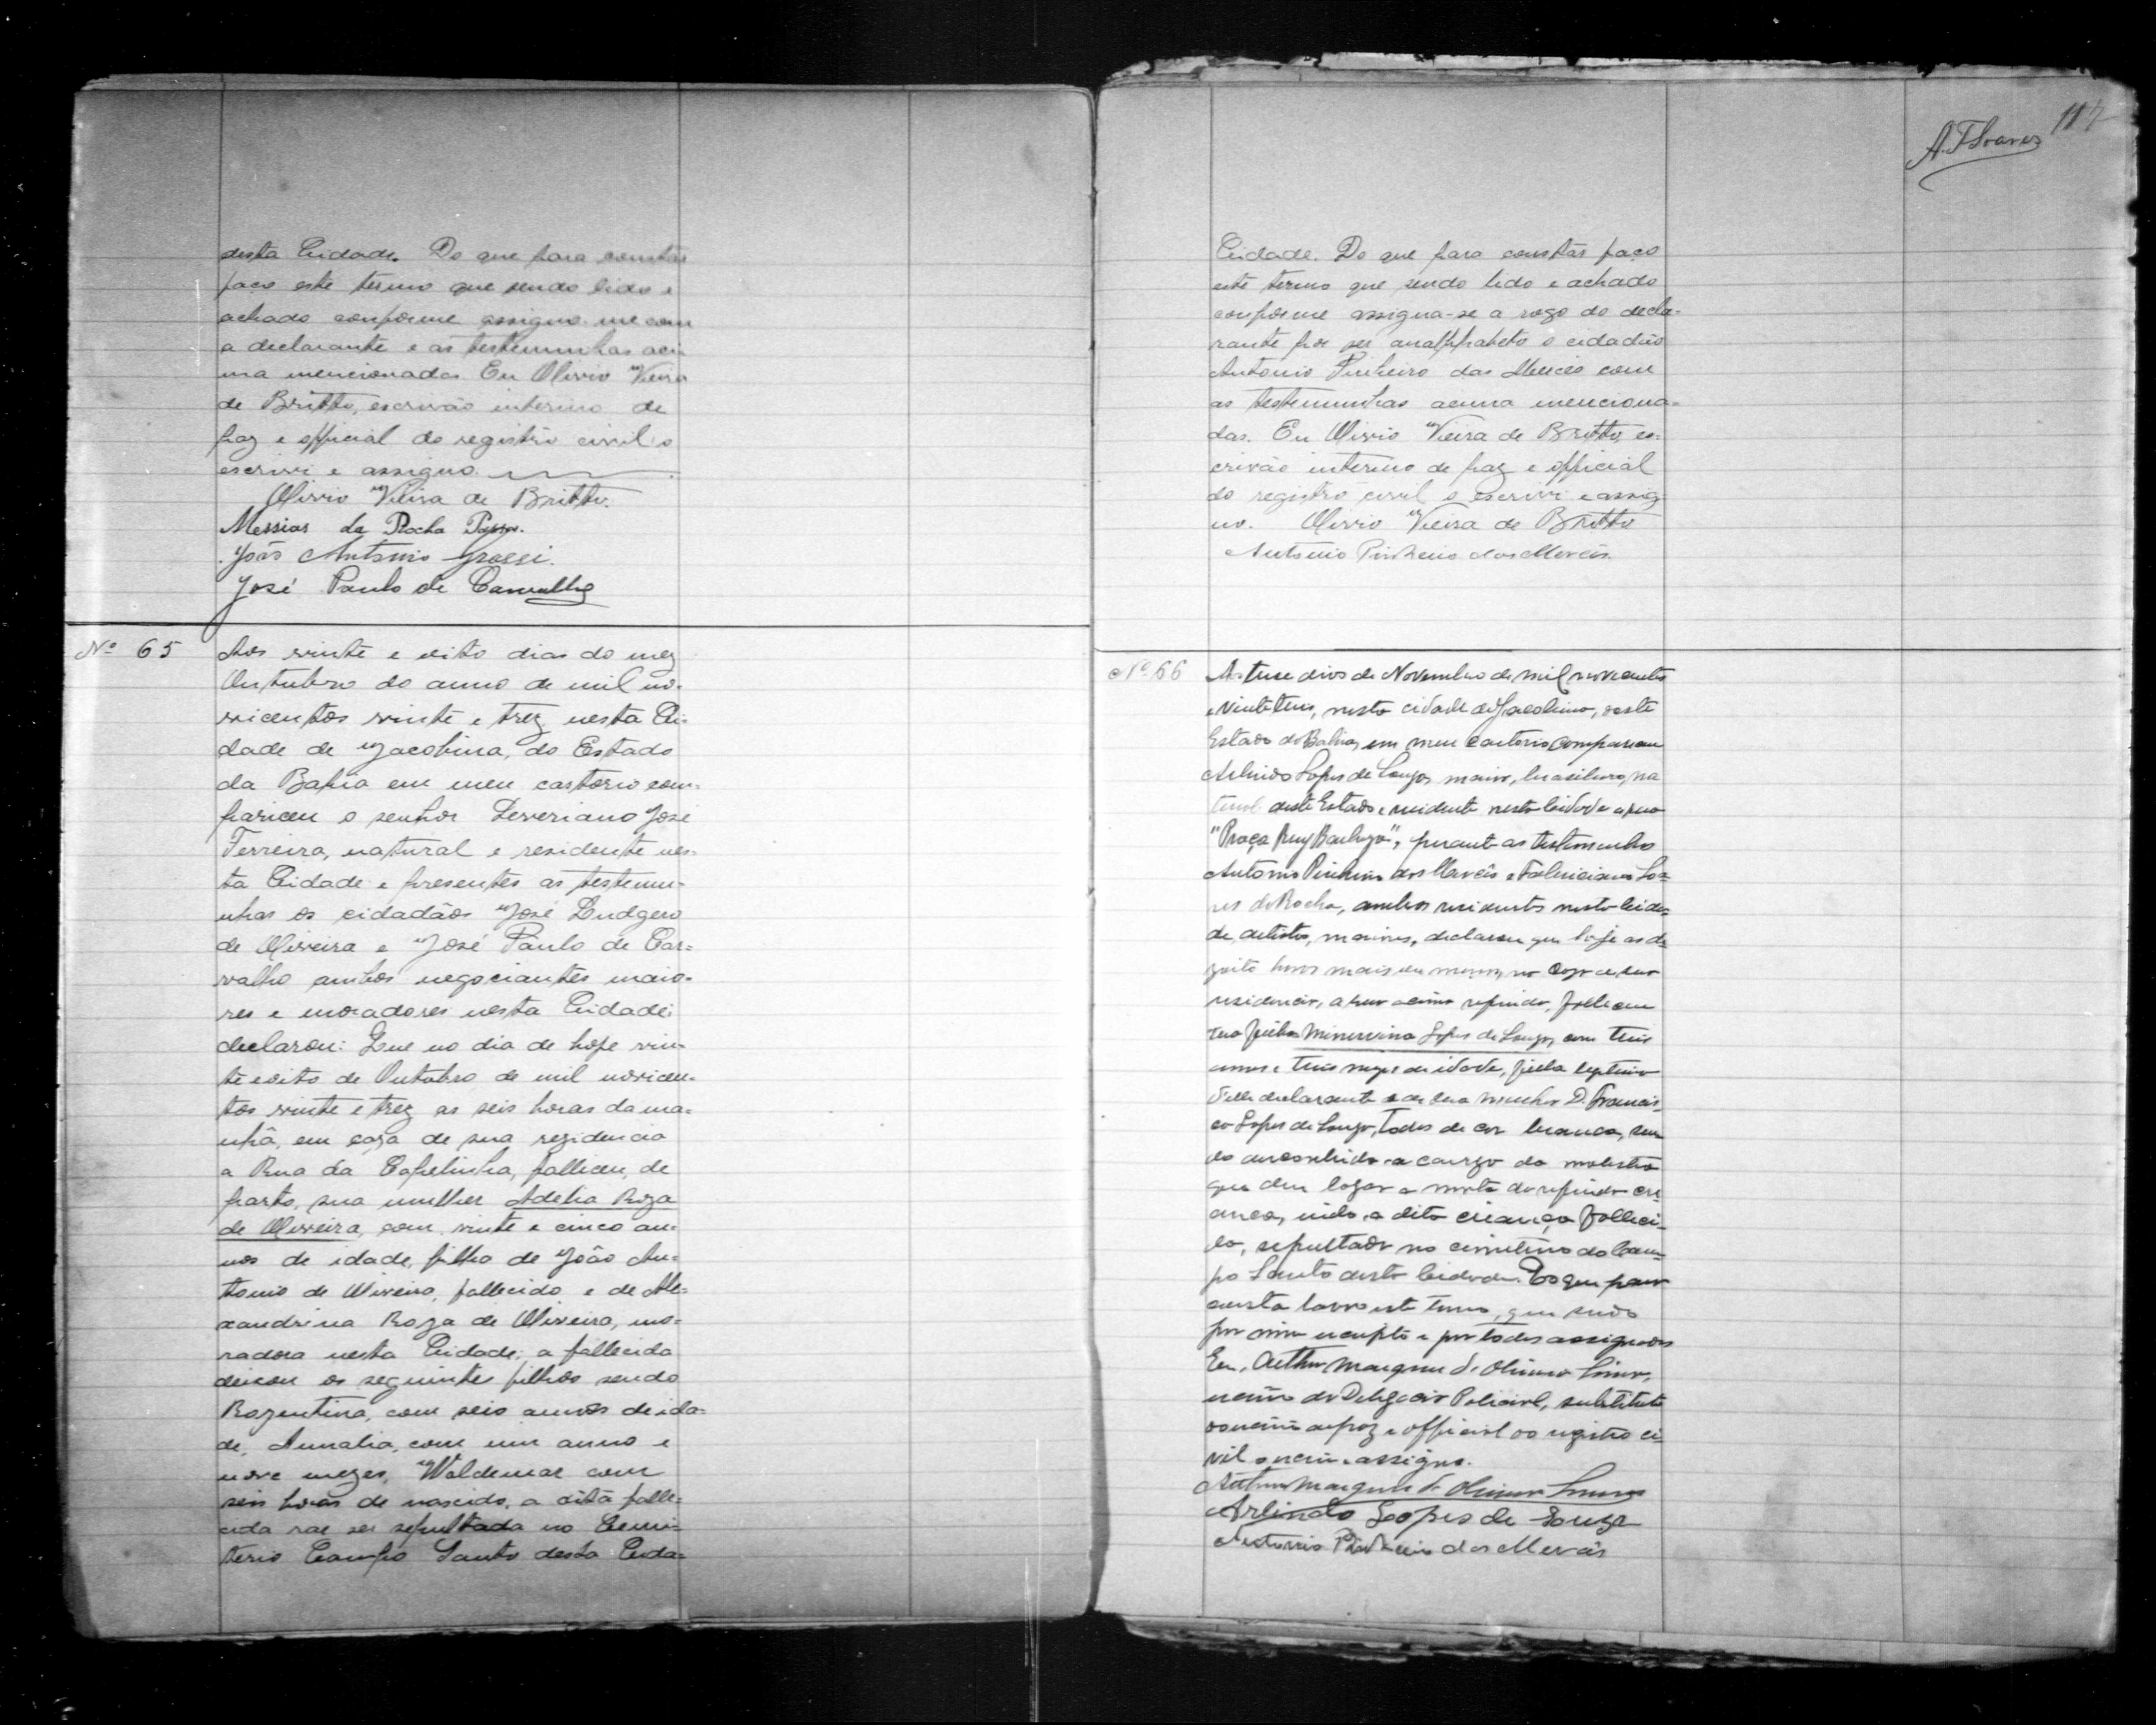 desta Cidade. Do que para constar
faço este termo que sendo lido e
achado conforme assigno-me com
a declarante e as testemunhas aci-
ma mencionadas. Eu Olivio Vieira
de Britto, escrivão interino de
paz e official do registro civil o
escrivi e assigno.
Olivio Vieira de Britto.
Messias da Rocha Passos.
João Antonio Grassi.
José Paulo de Carvalho
Nº 65
Aos vinte e oito dias do mez
Outubro do anno de mil no-
vicentos vinte e trez nesta Ci-
dade de Jacobina, do Estado
da Bahia em meu cartorio com-
pariceu o senhor Severiano José
Ferreira, natural e residente nes-
ta Cidade e presentes as testemu-
nhas os cidadãos José Ludgero
de Oliveira e José Paulo de Car-
valho ambos negociantes maio-
res e moradores nesta Cidade;
declarou: Que no dia de hoje vin-
te e oito de Outubro de mil novicen-
tos vinte e trez as seis horas da ma-
nhã, em caza de sua rezidencia
a Rua da Capelinha, falliceu, de
parto, sua mulher Adelia Roza
de Oliveira, com vinte e cinco an-
nos de idade, filha de João An-
tonio de Oliveira, fallecido e de Ale-
xandrina Roza de Oliveira, mo-
radora nesta Cidade; a fallecida
deixou os seguintes filhos sendo
Rozentina, com seis annos de ida-
de, Amalia, com um anno e
nove mezes, Waldemar com
seis horas de nascido, a dita falle-
cida vae ser sepultada no Cemi-
terio Campo Santo desta Cida-
A. F. Soares
117
Cidade. Do que para constar faço
este termo que sendo lido e achado
conforme assigna-se a rogo do decla-
rante por ser analphabeto o cidadão
Antonio Pinheiro das Mercês com
as testemunhas acima menciona-
das. Eu Olivio Vieira de Britto, es-
crivão interino de paz e official
do registro civil o escrivi e assig-
no. Olivio Vieira de Britto
Antonio Pinheiro das Mercês.
Nº 66
Aos treze dias de Novembro de mil novecentos
e vinte tres, nesta cidade de Jacobina, deste
Estado da Bahia, em meu cartorio compareceu
Arlindo Lopes de Souza, maior, brasileiro, na
tural deste Estado e residente nesta Cidade a rua
"Praça Ruy Barbosa", perante as testemunhas
Antonio Pinheiro das Mercês e Feliciano Lo-
pes da Rocha, ambos residentes nesta cida-
de, artistas, maiores, declarou que hoje as de-
zoito horas mais ou menos, na caza de sua
residencia, a rua acima referida, falleceu
sua filha Minervina Lopes de Souza, com tres
annos e tres mezes de idade, filha legitima
delle declarante e de sua mulher D. Francis-
ca Lopes de Souza, todos de cor branca, sen-
do desconhecida a causa da molestia
que deu logar a morte da referida cri-
ança, indo a dita criança falleci-
da, sepultada no cemiterio do Cam-
po Santo desta Cidade. Do que para
constar lavro este termo, que sendo
por mim escripto e por todos assignado
Eu, Arthur Marques de Oliveira Lima,
escrivão da Delegacia Policial, substituto
do escrivão de paz e official do registro ci-
vil o escrivi e assigno.
Arthur Marques de Oliveira Lima
Arlindo Lopes de Souza
Antonio Pinheiro das Mercês